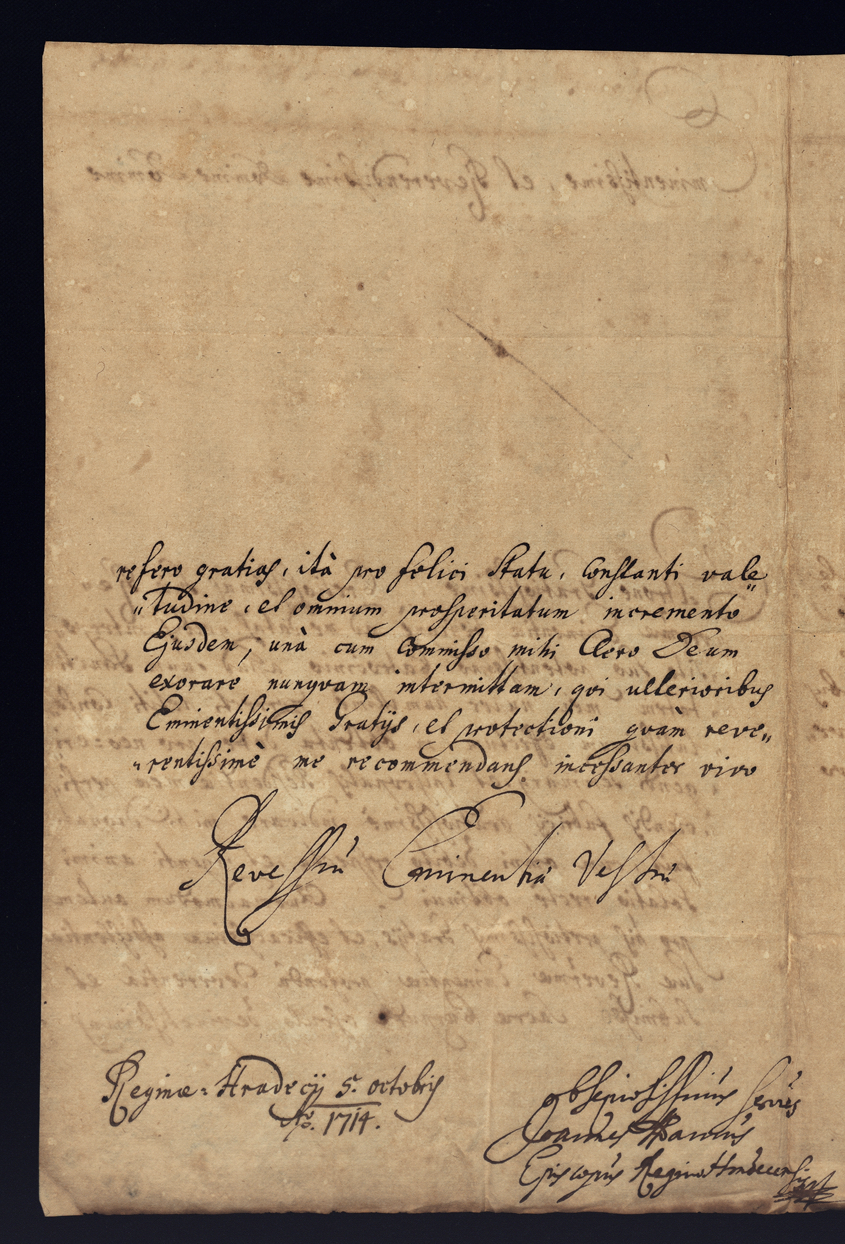 refero gratias, ità pro felici Statu, Constanti vale„
„tudine, et omnium prosperitatum incremento
Ejusdem, unà cum Commisso mihi Clero Deum
exorare nunqvam intermittam, qvi ulterioribus
Eminentissimis Gratijs, et protectioni qvàm reve„
„rentissimè me recommendans incessanter vivo
Eminentiæ Vestræ
Reginæ-Hradecij 5. octobris
Aõ. 1714.
obseqviosissimus servus
Joannes Adamus
Episcopus Reginæ Hradecensis